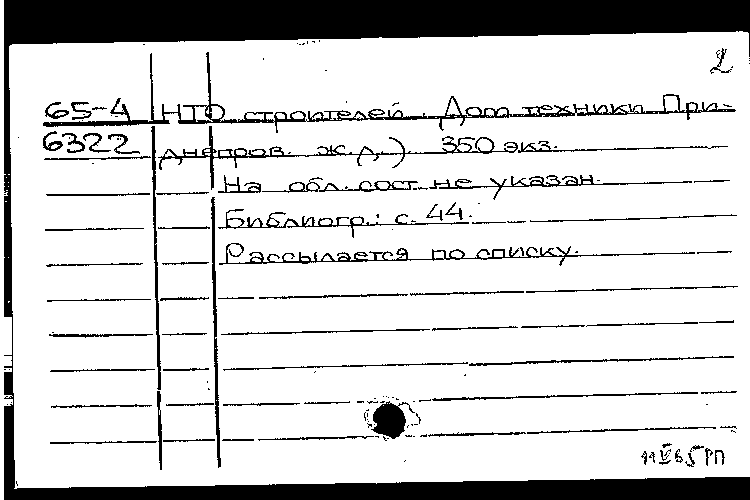 2
65-4 НТО строителей. Дом техники При-
6322 днепров. ж. д.). 350 экз.
На обл. сост. не указан.
Библиогр.: с. 44.
Рассылается по списку.
65 РП